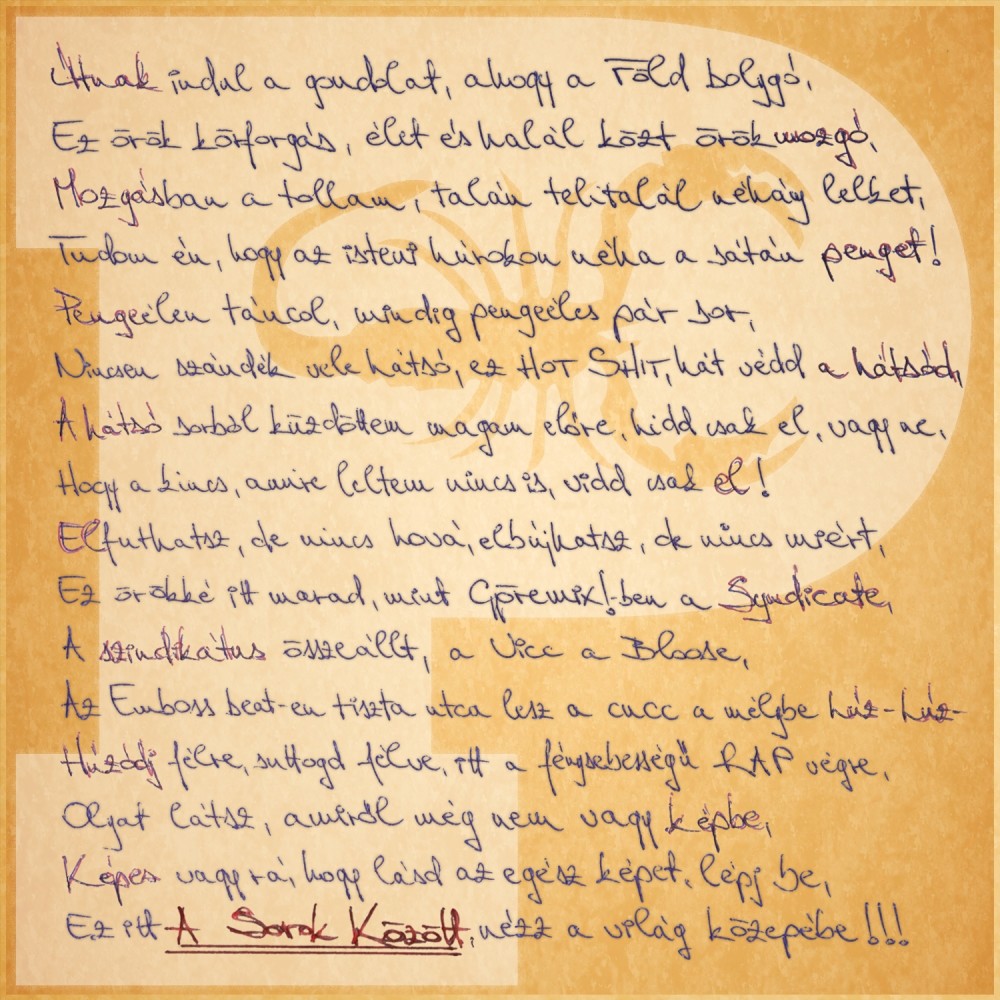 Útnak indul a gondolat, ahogy a Föld bolygó,
Ez örök körforgás, élet és halál közt örökmozgó,
Mozgásban a tollam, talán telitalál néhány lelket,
Tudom én, hogy az isteni húrokon néha a sátán penget!
Pengeélen táncol, mindig pengeéles pár sor,
Nincsen szándék vele hátsó, ez HOT SHIT, hát védd a hátsód,
A hátsó sorból küzdöttem magam előre, hidd csak el, vagy ne,
Hogy a kincs, amire leltem nincs is, vidd csak el!
Elfuthatsz, de nincs hová, elbújhatsz, de nincs miért,
Ez örökké itt marad, mint Göremix!-ben a Syndicate,
A szindikátus összeállt, a Vicc a Bloose,
Az Emboss beat-en tiszta utca lesz a cucc a mélybe húz-húz-
Húzódj félre, suttogd félve, itt a fénysebességű RAP végre,
Olyat látsz, amiről még nem vagy képbe,
Képes vagy rá, hogy lásd az egész képet, lépj be,
Ez itt A Sorok Között, nézz a világ közepébe!!!